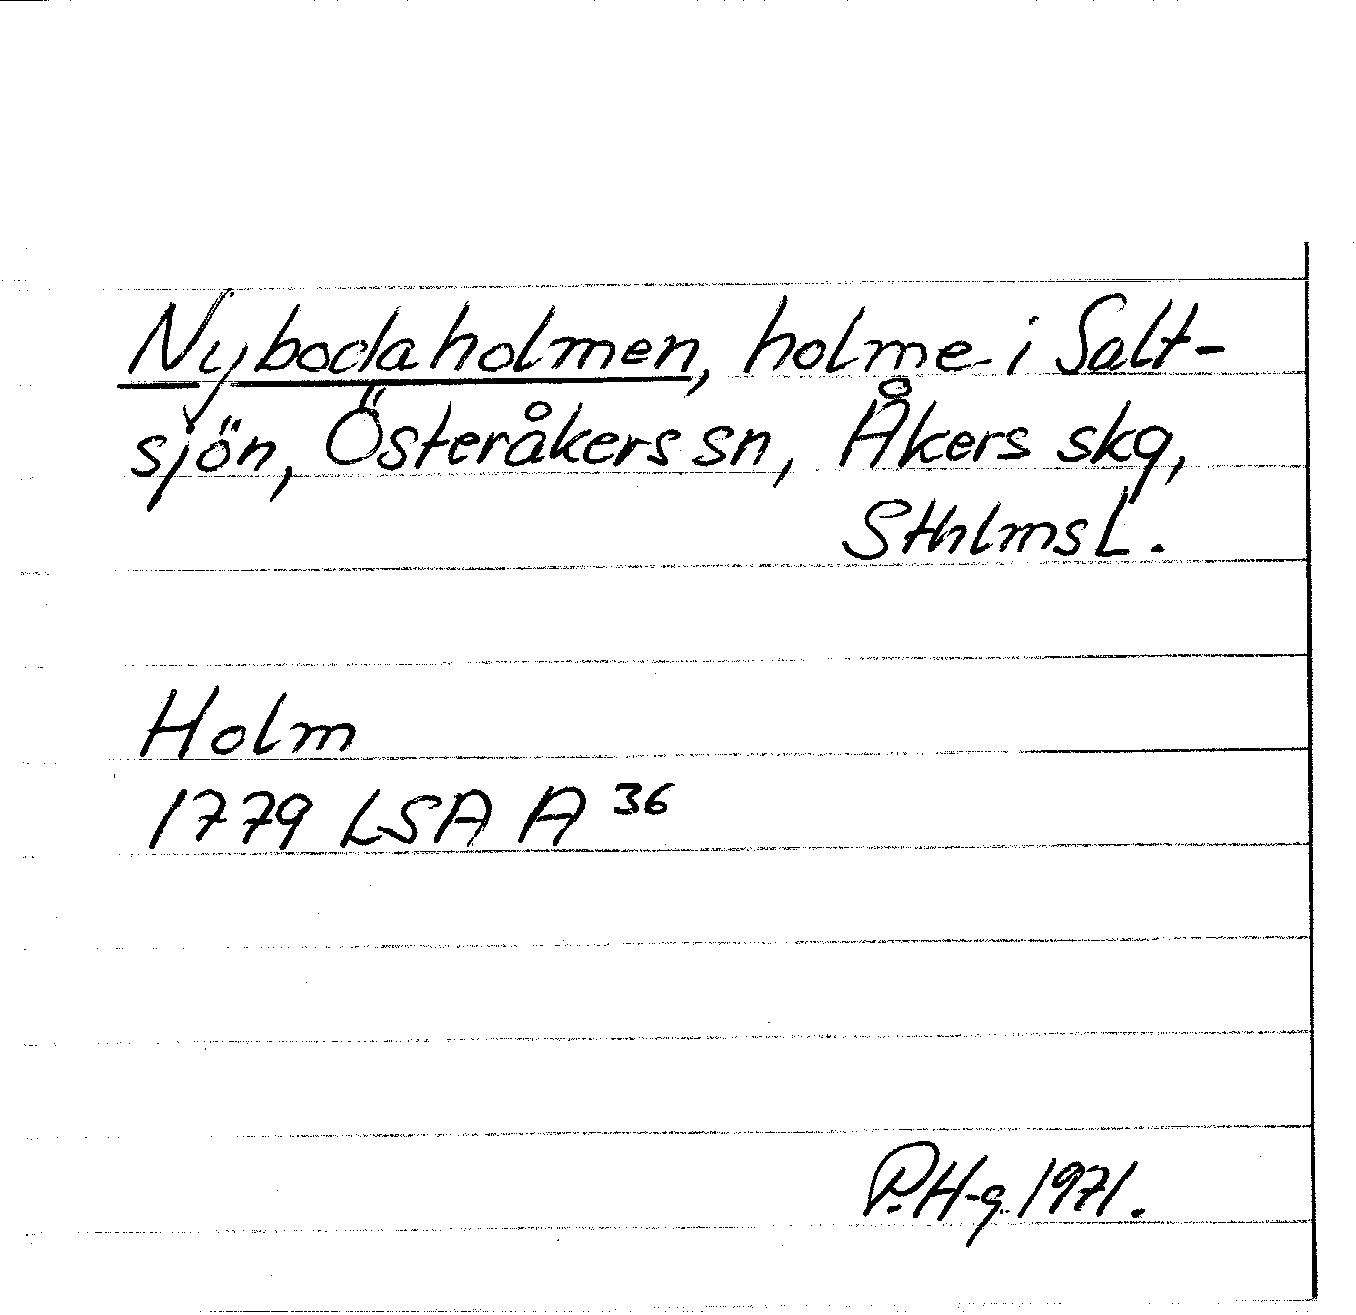 Nybodaholmen, holme i Salt-
sjön, Österåkers sn, Åkers skg,
Sthlms L.
Holm
1779 LSA A 36
P.H-g. 1971.